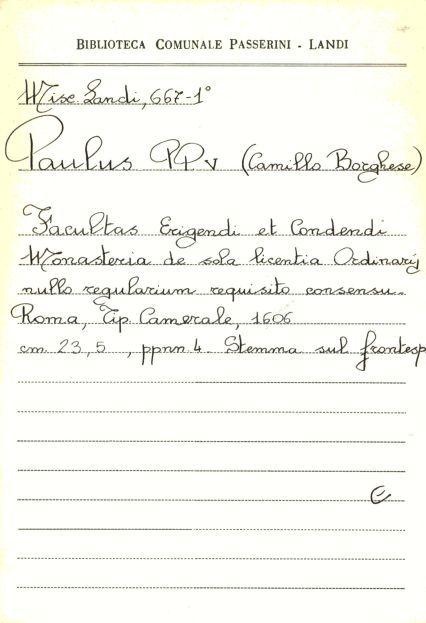 BIBLIOTECA COMUNALE PASSERINI - LANDI
Misc. Landi, 667-1°
Paulus PP V (Camillo Borghese)
Facultas Erigendi et Condendi
Monasteria de sola licentia Ordinarij
nullo regularium requisito consensu.
Roma, Tip. Camerale, 1606
cm 23,5 , ppnn 4. Stemma sul frontesp
E